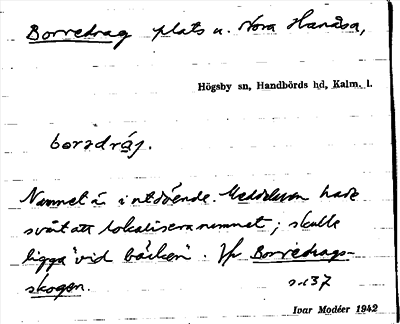 Borredrag plats u. Nora Hanåsa,
Högsby sn, Handbörds hd, Kalm. l.
boredráj.
Namnet är i utdöende. Meddelaren hade
svårt att lokalisera namnet; skulle
ligga "vid bäcken". Jfr Borredrags-
skogen.
s. 137
Ivar Modéer 1942